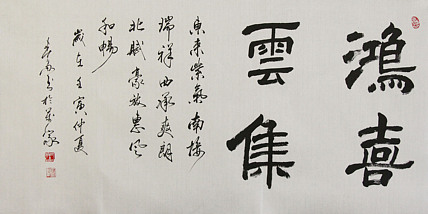 鴻喜
雲集
東來紫氣南接
瑞祥西承爽朗
北賦豪放惠風
和暢
歲在壬寅仲夏